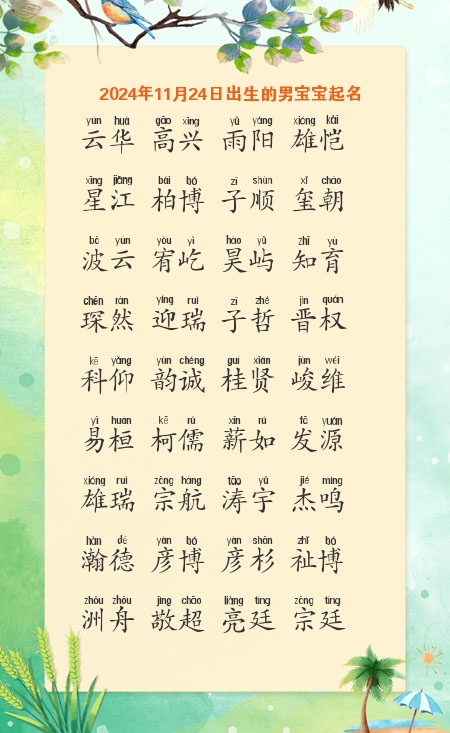 2024年11月24日出生的男宝宝起名
yún huá gāo xīng yǔ yáng xióng kǎi
云华 高兴 雨阳 雄恺
xīng jiāng bǎi bó zǐ shùn xǐ cháo
星江 柏博 子顺 玺朝
bō yún yòu yì hào yǔ zhī yù
波云 宥屹 昊屿 知育
chēn rán yíng ruì zǐ zhé jìn quán
琛然 迎瑞 子哲 晋权
kē yǎng yùn chéng guì xián jùn wéi
科仰 韵诚 桂贤 峻维
yì huán kē rú xīn rú fā yuán
易桓 柯儒 薪如 发源
xióng ruì zōng háng tāo yǔ jié míng
雄瑞 宗航 涛宇 杰鸣
hàn dé yàn bó yàn shān zhǐ bó
瀚德 彦博 彦杉 祉博
zhōu zhōu jìng chāo liàng tíng zōng tíng
洲舟 敬超 亮廷 宗廷